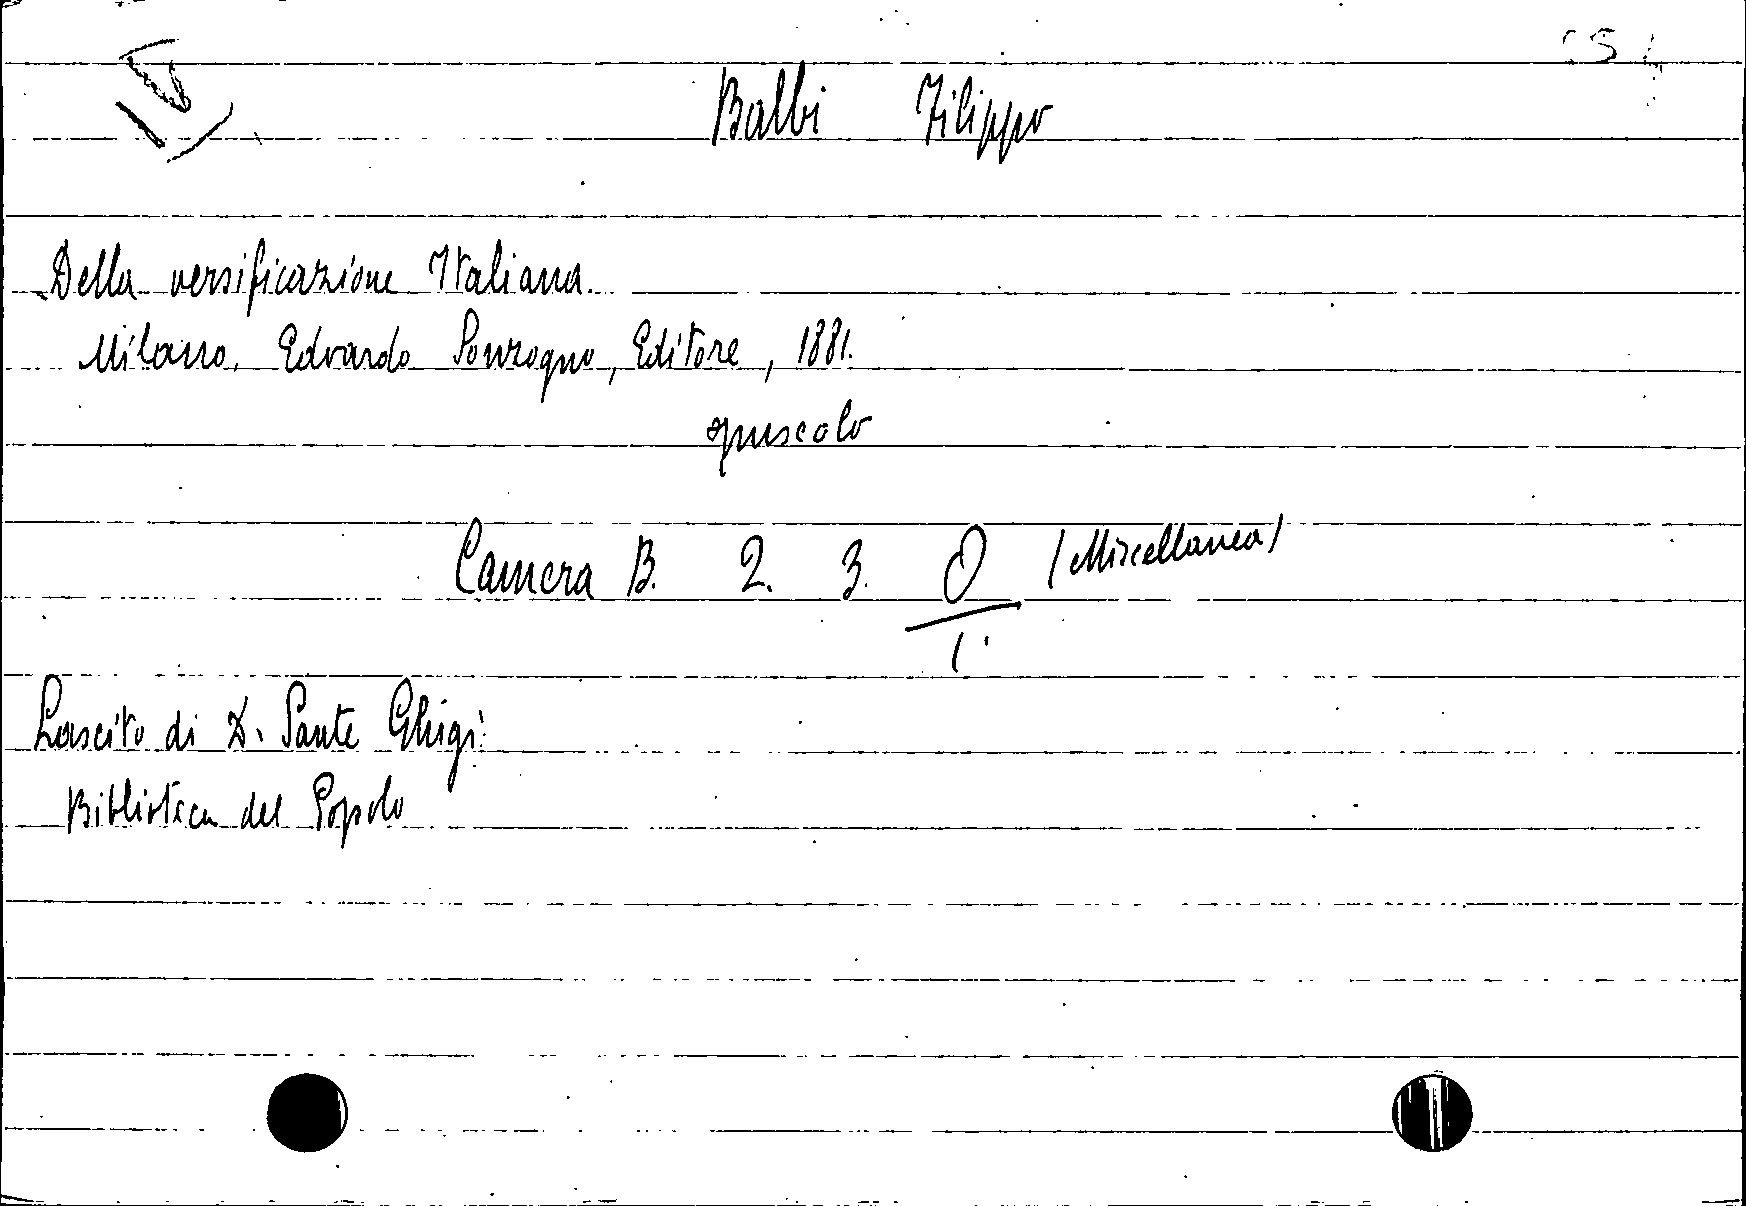 Balbi Filippo
Della versificazione Italiana.
Milano, Edoardo Sonzogno, Editore, 1881.
opuscolo
Camera B. 2. 3. O (Miscellanea)
1.
Lascito di D. Sante Ghigi
Biblioteca del Popolo